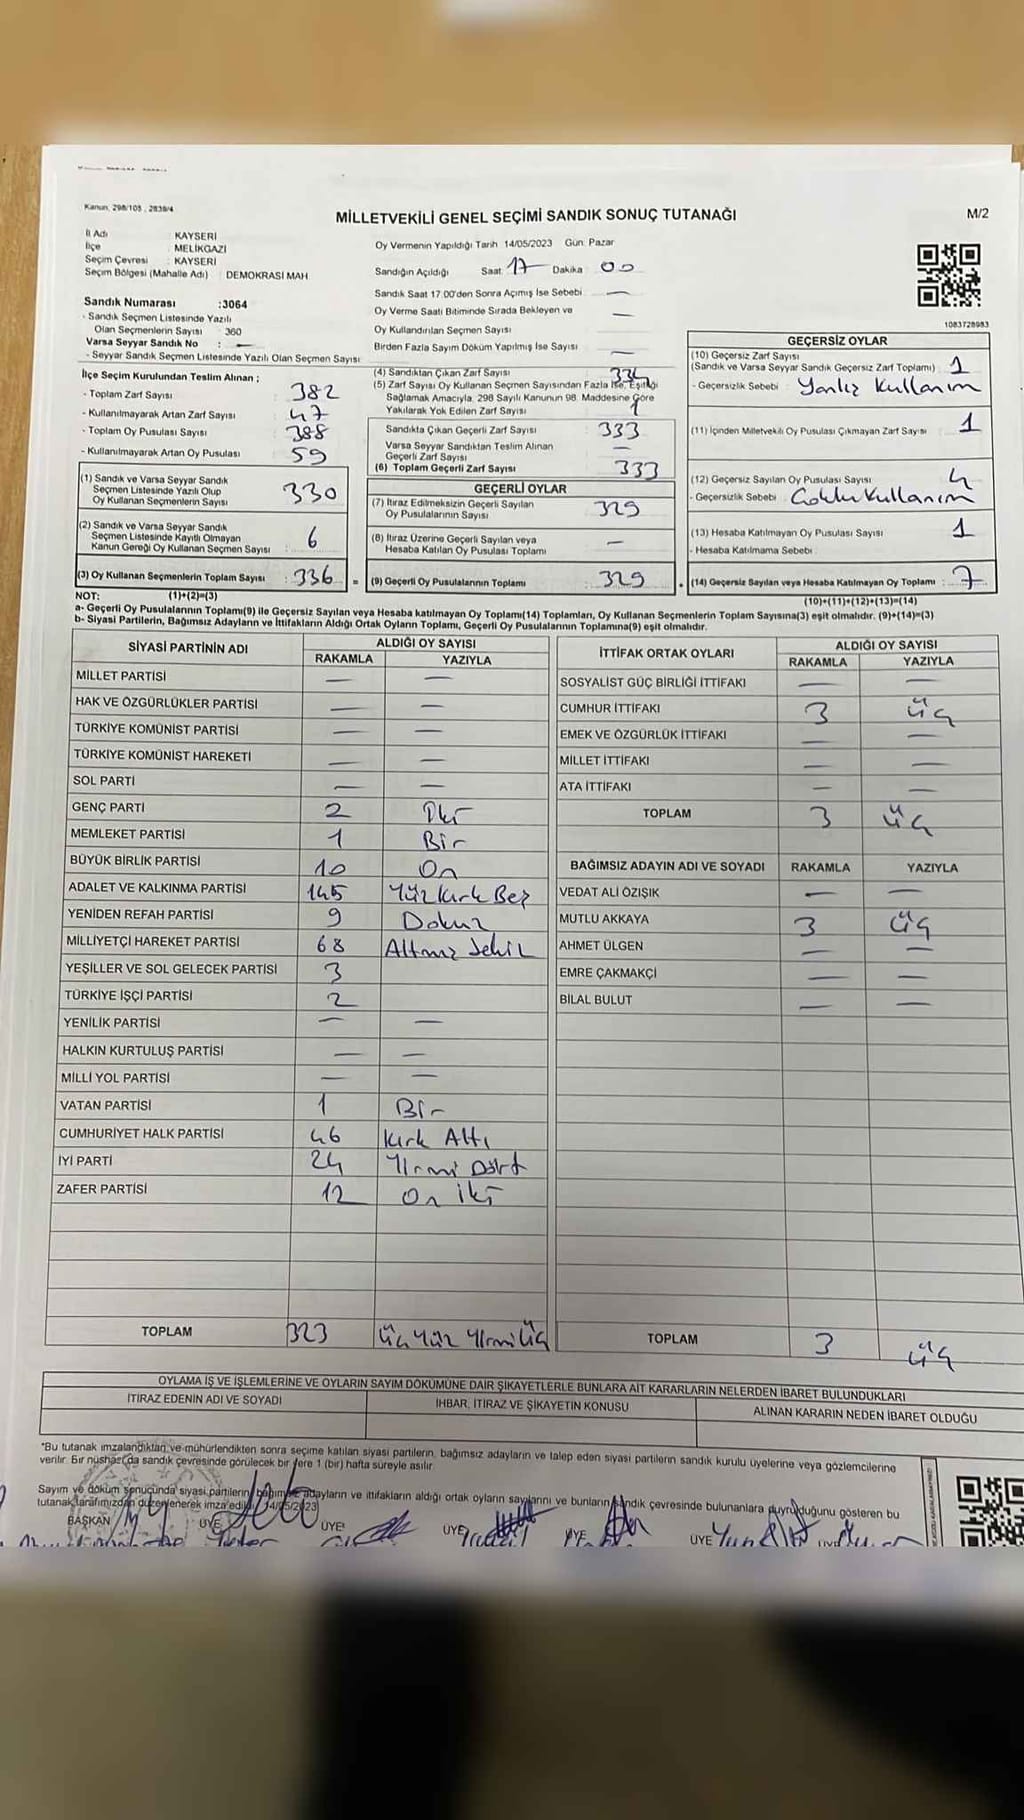 Kanun, 298/105 , 2839/4
MİLLETVEKİLİ GENEL SEÇİMİ SANDIK SONUÇ TUTANAĞI
M/2
İl Adı : KAYSERİ
İlçe : MELİKGAZİ
Seçim Çevresi : KAYSERİ
Seçim Bölgesi (Mahalle Adı) : DEMOKRASI MAH
Sandık Numarası :3064
- Sandık Seçmen Listesinde Yazılı
Olan Seçmenlerin Sayısı : 360
Varsa Seyyar Sandık No : —
- Seyyar Sandık Seçmen Listesinde Yazılı Olan Seçmen Sayısı :
Oy Vermenin Yapıldığı Tarih 14/05/2023 Gün: Pazar
Sandığın Açıldığı Saat: 17 Dakika : 00
Sandık Saat 17:00'den Sonra Açımış İse Sebebi : —
Oy Verme Saati Bitiminde Sırada Bekleyen ve
Oy Kullandırılan Seçmen Sayısı : —
Birden Fazla Sayım Döküm Yapılmış İse Sayısı : —
1083728983
İlçe Seçim Kurulundan Teslim Alınan ;
- Toplam Zarf Sayısı : 382
- Kullanılmayarak Artan Zarf Sayısı : 47
- Toplam Oy Pusulası Sayısı : 388
- Kullanılmayarak Artan Oy Pusulası : 59
(1) Sandık ve Varsa Seyyar Sandık
Seçmen Listesinde Yazılı Olup
Oy Kullanan Seçmenlerin Sayısı : 330
(2) Sandık ve Varsa Seyyar Sandık
Seçmen Listesinde Kayıtlı Olmayan
Kanun Gereği Oy Kullanan Seçmen Sayısı : 6
(3) Oy Kullanan Seçmenlerin Toplam Sayısı : 336 =
(4) Sandıktan Çıkan Zarf Sayısı : 334
(5) Zarf Sayısı Oy Kullanan Seçmen Sayısından Fazla İse, Eşitliği
Sağlamak Amacıyla, 298 Sayılı Kanunun 98. Maddesine Göre
Yakılarak Yok Edilen Zarf Sayısı : 1
Sandıkta Çıkan Geçerli Zarf Sayısı : 333
Varsa Seyyar Sandıktan Teslim Alınan
Geçerli Zarf Sayısı : —
(6) Toplam Geçerli Zarf Sayısı : 333
GEÇERLİ OYLAR
(7) İtiraz Edilmeksizin Geçerli Sayılan
Oy Pusulalarının Sayısı : 329
(8) İtiraz Üzerine Geçerli Sayılan veya
Hesaba Katılan Oy Pusulası Toplamı : —
(9) Geçerli Oy Pusulalarının Toplamı : 329 +
GEÇERSİZ OYLAR
(10) Geçersiz Zarf Sayısı
(Sandık ve Varsa Seyyar Sandık Geçersiz Zarf Toplamı) : 1
- Geçersizlik Sebebi : Yanlız Kullanım
(11) İçinden Milletvekili Oy Pusulası Çıkmayan Zarf Sayısı : 1
(12) Geçersiz Sayılan Oy Pusulası Sayısı : 4
- Geçersizlik Sebebi : Çoklu Kullanım
(13) Hesaba Katılmayan Oy Pusulası Sayısı : 1
- Hesaba Katılmama Sebebi :
(14) Geçersiz Sayılan veya Hesaba Katılmayan Oy Toplamı : 7
NOT: (1)+(2)=(3)
(10)+(11)+(12)+(13)=(14)
a- Geçerli Oy Pusulalarının Toplamı(9) ile Geçersiz Sayılan veya Hesaba katılmayan Oy Toplam(14) Toplamları, Oy Kullanan Seçmenlerin Toplam Sayısına(3) eşit olmalıdır. (9)+(14)=(3)
b- Siyasi Partilerin, Bağımsız Adayların ve İttifakların Aldığı Oyların Toplamı, Geçerli Oy Pusulalarının Toplamına(9) eşit olmalıdır.
SİYASİ PARTİNİN ADI ALDIĞI OY SAYISI
RAKAMLA YAZIYLA
MİLLET PARTİSİ — —
HAK VE ÖZGÜRLÜKLER PARTİSİ — —
TÜRKİYE KOMÜNİST PARTİSİ — —
TÜRKİYE KOMÜNİST HAREKETİ — —
SOL PARTİ — —
GENÇ PARTİ 2 İki
MEMLEKET PARTİSİ 1 Bir
BÜYÜK BİRLİK PARTİSİ 10 On
ADALET VE KALKINMA PARTİSİ 145 Yüz Kırk Beş
YENİDEN REFAH PARTİSİ 9 Dokuz
MİLLİYETÇİ HAREKET PARTİSİ 68 Altmış Sekiz
YEŞİLLER VE SOL GELECEK PARTİSİ 3
TÜRKİYE İŞÇİ PARTİSİ 2
YENİLİK PARTİSİ — —
HALKIN KURTULUŞ PARTİSİ — —
MİLLİ YOL PARTİSİ — —
VATAN PARTİSİ 1 Bir
CUMHURİYET HALK PARTİSİ 46 Kırk Altı
İYİ PARTİ 24 Yirmi Dört
ZAFER PARTİSİ 12 On İki
TOPLAM 323 Üç Yüz Yirmi Üç
İTTİFAK ORTAK OYLARI ALDIĞI OY SAYISI
RAKAMLA YAZIYLA
SOSYALİST GÜÇ BİRLİĞİ İTTİFAKI — —
CUMHUR İTTİFAKI 3 Üç
EMEK VE ÖZGÜRLÜK İTTİFAKI — —
MİLLET İTTİFAKI — —
ATA İTTİFAKI — —
TOPLAM 3 Üç
BAĞIMSIZ ADAYIN ADI VE SOYADI RAKAMLA YAZIYLA
VEDAT ALİ ÖZIŞIK — —
MUTLU AKKAYA 3 Üç
AHMET ÜLGEN — —
EMRE ÇAKMAKÇİ — —
BİLAL BULUT — —
TOPLAM 3 Üç
OYLAMA İŞ VE İŞLEMLERİNE VE OYLARIN SAYIM DÖKÜMÜNE DAİR ŞİKAYETLERLE BUNLARA AİT KARARLARIN NELERDEN İBARET BULUNDUKLARI
İTİRAZ EDENİN ADI VE SOYADI İHBAR, İTİRAZ VE ŞİKAYETİN KONUSU ALINAN KARARIN NEDEN İBARET OLDUĞU
*Bu tutanak imzalandıktan ve mühürlendikten sonra seçime katılan siyasi partilerin, bağımsız adayların ve talep eden siyasi partilerin sandık kurulu üyelerine veya gözlemcilerine
verilir. Bir nüshası da sandık çevresinde görülecek bir yere 1 (bir) hafta süreyle asılır.
Sayım ve döküm sonucunda siyasi partilerin, bağımsız adayların ve ittifakların aldığı ortak oyların sayılarını ve bunların sandık çevresinde bulunanlara duyrulduğunu gösteren bu
tutanak tarafımızdan düzenlenerek imza edildi. 14/05/2023
BAŞKAN ÜYE ÜYE ÜYE ÜYE ÜYE ÜYE